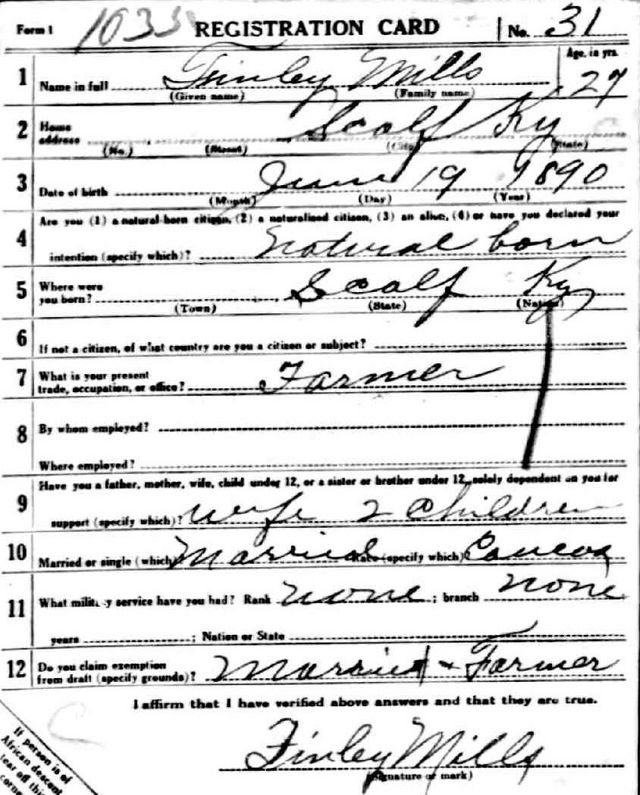 Form 1 1033 REGISTRATION CARD No. 31
1 Name in full Finley Mills Age, in yrs. 27
(Given name) (Family name)
2 Home address Scalf Ky
(No.) (Street) (City) (State)
3 Date of birth June 19 1890
(Month) (Day) (Year)
4 Are you (1) a natural-born citizen, (2) a naturalized citizen, (3) an alien, (4) or have you declared your
intention (specify which)? Natural born
5 Where were you born? Scalf Ky
(Town) (State) (Nation)
6 If not a citizen, of what country are you a citizen or subject?
7 What is your present trade, occupation, or office? Farmer
8 By whom employed?
Where employed?
9 Have you a father, mother, wife, child under 12, or a sister or brother under 12, solely dependent on you for
support (specify which)? wife 2 children
10 Married or single (which)? Married Race (specify which)?
11 What military service have you had? Rank none ; branch none
years ; Nation or State
12 Do you claim exemption from draft (specify grounds)? Married + Farmer
I affirm that I have verified above answers and that they are true.
Finley Mills
(Signature or mark)
If person is of
African descent
tear off this
corner